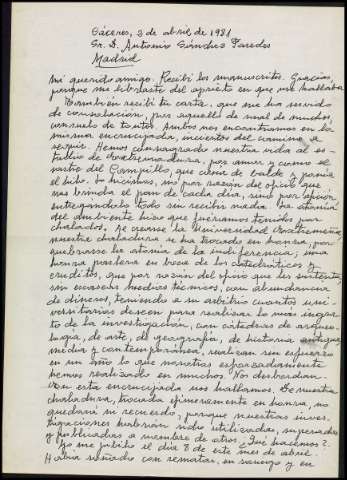 Cáceres, 3 de abril de 1981
Sr. D. Antonio Sánchez Paredes
Madrid
Mi querido amigo: Recibí los manuscritos. Gracias,
porque me libraste del aprieto en que me hallaba.
También recibí tu carta, que me ha servido
de consolación, por aquello de mal de muchos,
consuelo de tontos. Ambos nos encontramos en la
misma encrucijada, inciertos del camino a
seguir. Hemos consagrado nuestra vida al es-
tudio de Extremadura, por amor y como el
sastre del Campillo, que cosía de balde y ponía
el hilo. Lo hicimos, no por razón del oficio que
nos brinda el pan de cada día, sino por afición,
entregándolo todo sin recibir nada. La
del ambiente hizo que fuéramos tenidos por
chalados. Al crearse la Universidad extremeña,
nuestra chaladura se ha trocado en honra, por
quebrarse la atonía de la indiferencia; una
honra postrera en brazos de los catedráticos y
eruditos, que por razón del oficio que les sustenta,
sin escasos medios técnicos, con abundancia
de dineros, teniendo a su arbitrio cuantos uni-
versitarios deseen para realizar lo más ingra-
to de la investigación, con cátedras de arqueo-
logía, de arte, de geografía, de historia antigua,
media y contemporánea, realizan sin esfuerzo
en un año lo que nosotros esparzadamente
hemos realizado en muchos. Nos desbordan.
Con esta encrucijada nos hallamos. De nuestra
chaladura, trocada efímeramente en honra, no
quedará ni recuerdo, porque nuestras inves-
tigaciones habrán sido utilizadas, superadas
y publicadas a nombre de otros. ¿Qué hacemos?
Yo me jubilo el día 8 de este mes de abril.
Había soñado con rematar, en sosiego y en